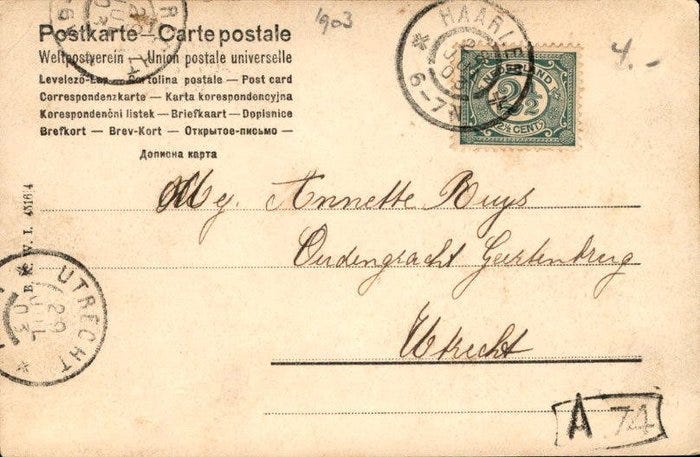 1903
4.-
Postkarte — Carte postale
Weltpostverein — Union postale universelle
Levelező-Lap — Cartolina postale — Post card
Correspondenzkarte — Karta korespondencyjna
Korespondenční listek — Briefkaart — Dopisnice
Brefkort — Brev-Kort — Открытое-письмо —
Дописна карта
HAARLEM
6-7N
NEDERLAND
2½
(2½ CENT)
Mej. Annette Ruys
Oudengracht Geertenbrug
Utrecht
B. K. W. I. 45184
UTRECHT
29
JUL
03
A 74